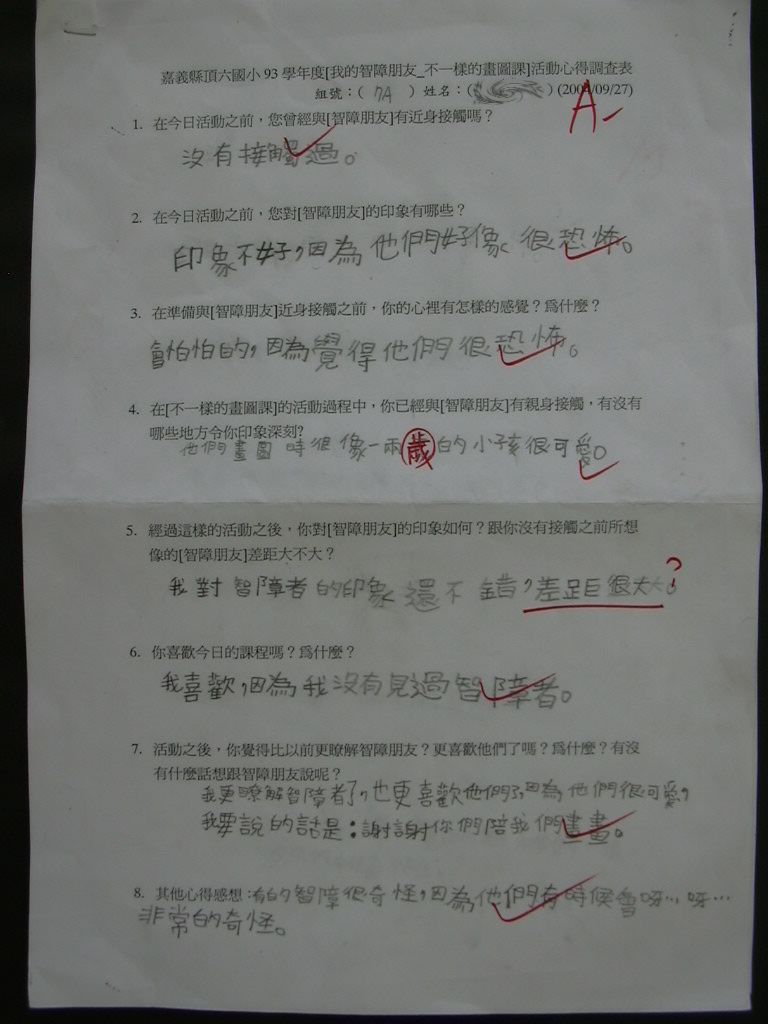 嘉義縣頂六國小 93 學年度[我的智障朋友_不一樣的畫圖課]活動心得調查表
組號：( 7A ) 姓名：( ) (2004/09/27)
A-
1. 在今日活動之前，您曾經與[智障朋友]有近身接觸嗎？
沒有接觸過。
2. 在今日活動之前，您對[智障朋友]的印象有哪些？
印象不好，因為他們好像很恐怖。
3. 在準備與[智障朋友]近身接觸之前，你的心裡有怎樣的感覺？爲什麼？
會怕怕的，因為覺得他們很恐怖。
4. 在[不一樣的畫圖課]的活動過程中，你已經與[智障朋友]有親身接觸，有沒有
哪些地方令你印象深刻?
他們畫圖時很像一兩歲的小孩很可愛。
5. 經過這樣的活動之後，你對[智障朋友]的印象如何？跟你沒有接觸之前所想
像的[智障朋友]差距大不大？
我對智障者的印象還不錯，差距很大大。?
6. 你喜歡今日的課程嗎？爲什麼？
我喜歡，因為我沒有見過智障者。
7. 活動之後，你覺得比以前更瞭解智障朋友？更喜歡他們了嗎？爲什麼？有沒
有什麼話想跟智障朋友說呢？
我更瞭解智障者了，也更喜歡他們了，因為他們很可愛，
我要說的話是：謝謝你們陪我們畫畫。
8. 其他心得感想：有的智障很奇怪，因為他們有時候會呀…呀…
非常的奇怪。